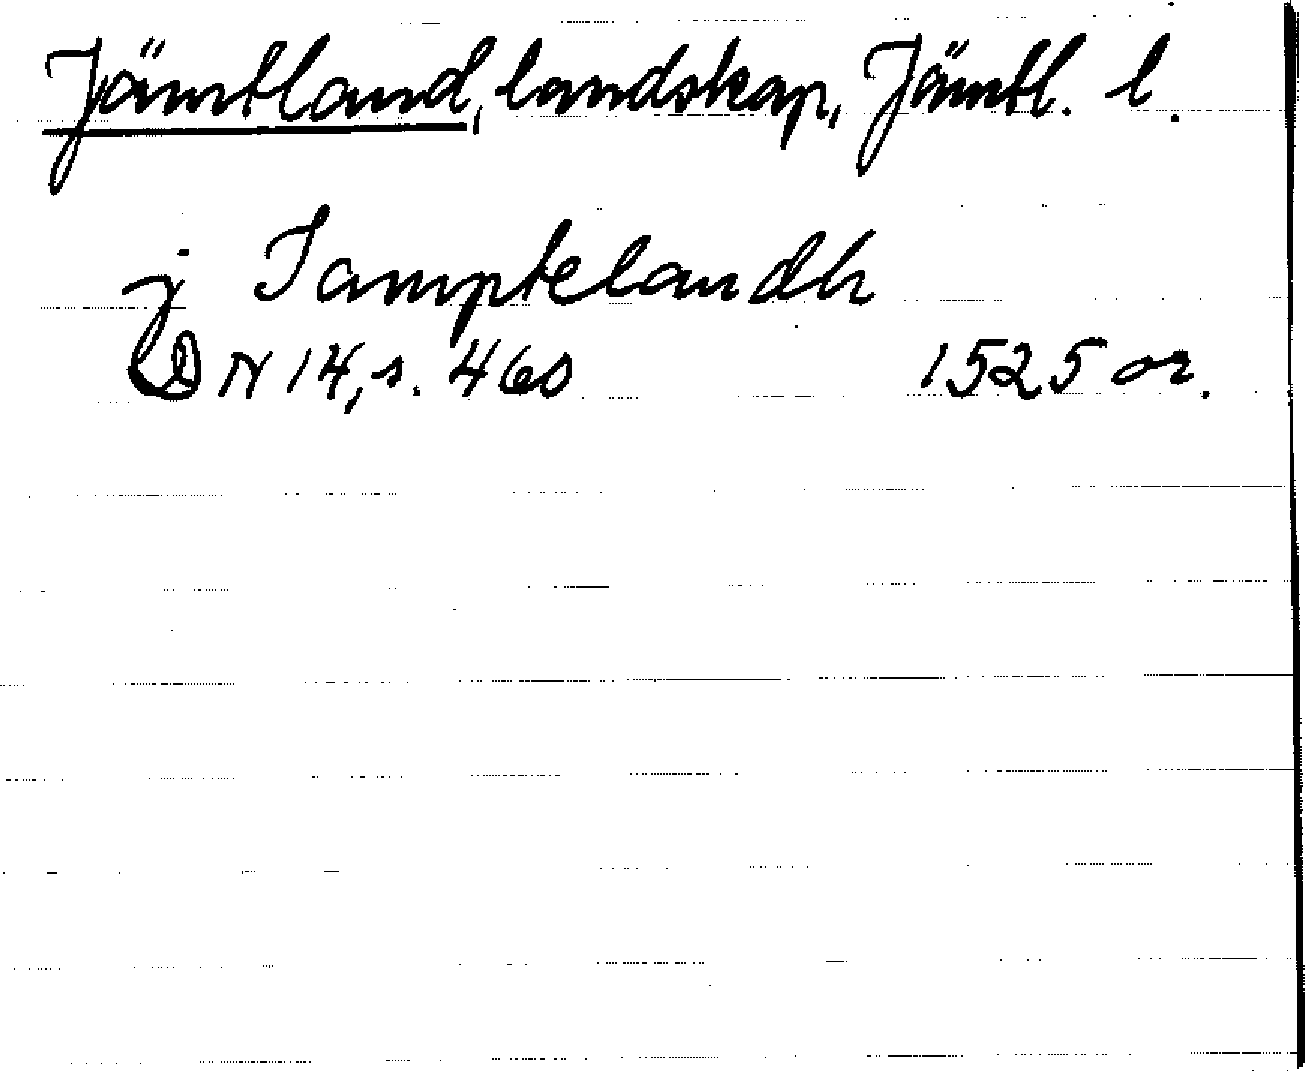 Jämtland, landskap, Jämtl. l.
j Iamptelandh
DN 14, s. 460 1525 or.